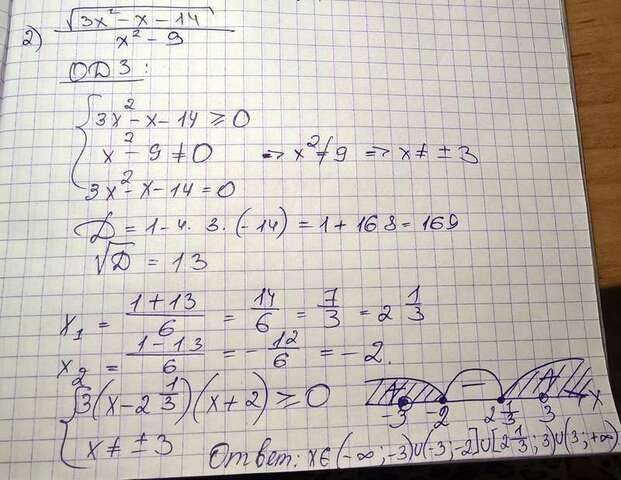 2) √(3x² - x - 14) / (x² - 9)
ОДЗ:
{ 3x² - x - 14 ≥ 0
x² - 9 ≠ 0 => x² ≠ 9 => x ≠ ± 3
3x² - x - 14 = 0
D = 1 - 4 · 3 · (-14) = 1 + 168 = 169
√D = 13
x₁ = (1 + 13)/6 = 14/6 = 7/3 = 2 1/3
x₂ = (1 - 13)/6 = - 12/6 = - 2.
{ 3(x - 2 1/3)(x + 2) ≥ 0
x ≠ ± 3
+ - +
-3 -2 2 1/3 3 x
Ответ: x∈(-∞; -3)∪(-3; -2]∪[2 1/3; 3)∪(3; +∞)